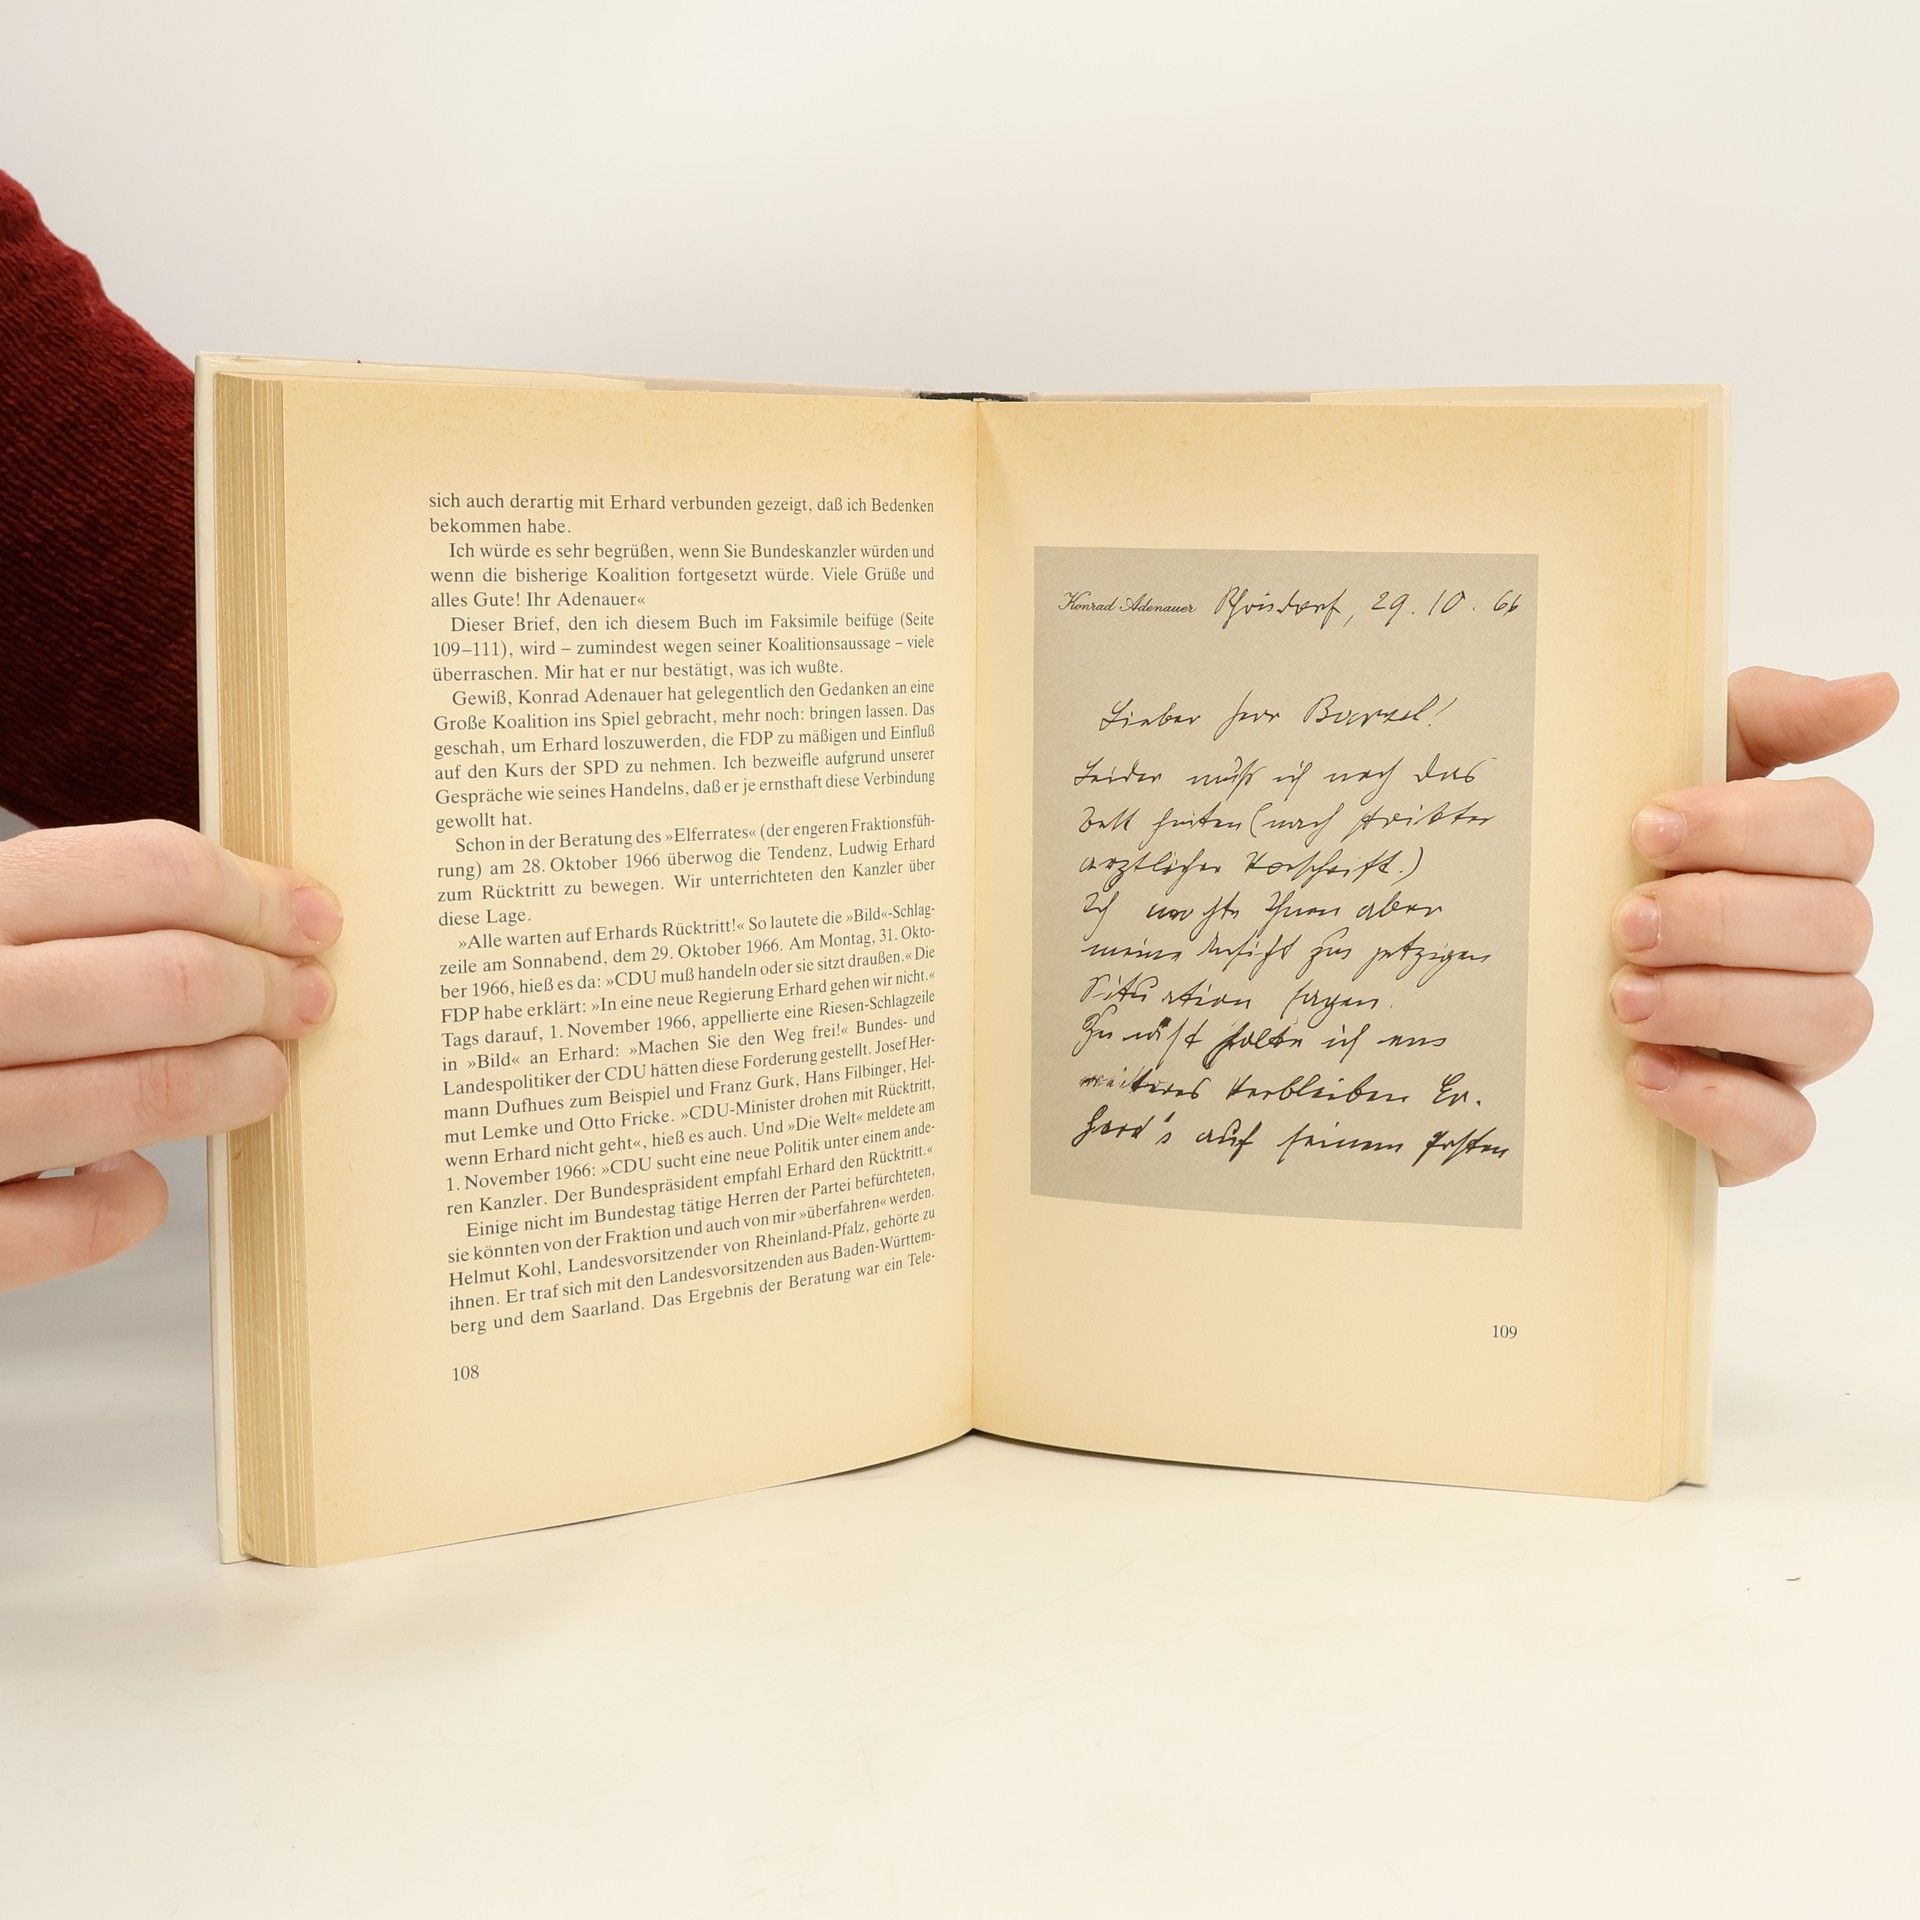 sich auch derartig mit Erhard verbunden gezeigt, daß ich Bedenken
bekommen habe.
Ich würde es sehr begrüßen, wenn Sie Bundeskanzler würden und
wenn die bisherige Koalition fortgesetzt würde. Viele Grüße und
alles Gute! Ihr Adenauer«
Dieser Brief, den ich diesem Buch im Faksimile beifüge (Seite
109–111), wird – zumindest wegen seiner Koalitionsaussage – viele
überraschen. Mir hat er nur bestätigt, was ich wußte.
Gewiß, Konrad Adenauer hat gelegentlich den Gedanken an eine
Große Koalition ins Spiel gebracht, mehr noch: bringen lassen. Das
geschah, um Erhard loszuwerden, die FDP zu mäßigen und Einfluß
auf den Kurs der SPD zu nehmen. Ich bezweifle aufgrund unserer
Gespräche wie seines Handelns, daß er je ernsthaft diese Verbindung
gewollt hat.
Schon in der Beratung des »Elferrates« (der engeren Fraktionsfüh-
rung) am 28. Oktober 1966 überwog die Tendenz, Ludwig Erhard
zum Rücktritt zu bewegen. Wir unterrichteten den Kanzler über
diese Lage.
»Alle warten auf Erhards Rücktritt!« So lautete die »Bild«-Schlag-
zeile am Sonnabend, dem 29. Oktober 1966. Am Montag, 31. Okto-
ber 1966, hieß es da: »CDU muß handeln oder sie sitzt draußen.« Die
FDP habe erklärt: »In eine neue Regierung Erhard gehen wir nicht.«
Tags darauf, 1. November 1966, appellierte eine Riesen-Schlagzeile
in »Bild« an Erhard: »Machen Sie den Weg frei!« Bundes- und
Landespolitiker der CDU hätten diese Forderung gestellt. Josef Her-
mann Dufhues zum Beispiel und Franz Gurk, Hans Filbinger, Hel-
mut Lemke und Otto Fricke. »CDU-Minister drohen mit Rücktritt,
wenn Erhard nicht geht«, hieß es auch. Und »Die Welt« meldete am
1. November 1966: »CDU sucht eine neue Politik unter einem ande-
ren Kanzler. Der Bundespräsident empfahl Erhard den Rücktritt.«
Einige nicht im Bundestag tätige Herren der Partei befürchteten,
sie könnten von der Fraktion und auch von mir »überfahren« werden.
Helmut Kohl, Landesvorsitzender von Rheinland-Pfalz, gehörte zu
ihnen. Er traf sich mit den Landesvorsitzenden aus Baden-Württem-
berg und dem Saarland. Das Ergebnis der Beratung war ein Tele-
108
Konrad Adenauer Rhöndorf, 29.10.66
Lieber Herr Barzel!
Leider muß ich noch das
Bett hüten (nach strikter
ärztlicher Vorschrift.)
Ich möchte Ihnen aber
meine Ansicht zur jetzigen
Situation sagen.
Zunächst halte ich ein
weiteres Verbleiben Er-
hard's auf seinem Posten
109